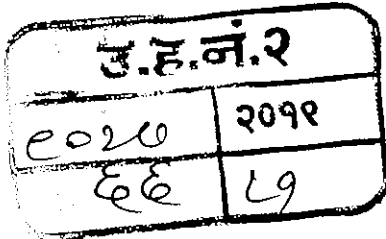 उ.ह.नं.२
९०२७ २०१९
६६ ८१